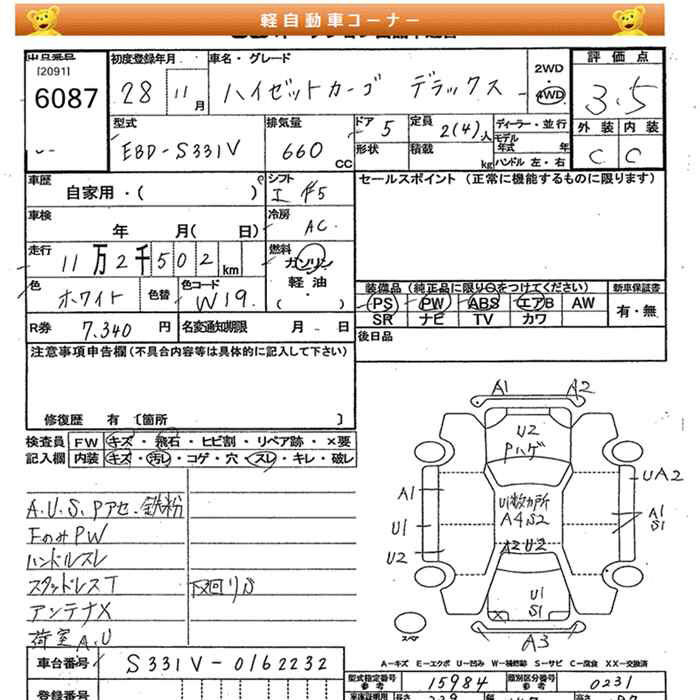 軽自動車コーナー
[2091]
6087
初度登録年月
28 11月
車名・グレード
ハイゼットカーゴ デラックス
2WD
・
4WD
評価点
3.5
外装 内装
C C
型式
EBD-S331V
排気量
660 CC
ドア
5
形状
定員
2(4)人
積載
kg
ディーラー・並行
モデル年式 年
ハンドル 左・右
車歴
自家用・( )
シフト
F5
セールスポイント (正常に機能するものに限ります)
車検
年 月( 日)
冷房
AC
走行
11万2千502km
燃料
ガソリン
軽・油
( ・ )
色
ホワイト
色替
色コード
W19
装備品(純正品に限り○をつけてください)
PS PW ABS エアB AW
SR ナビ TV カワ
新車保証書
有・無
R券
7,340円
名変通知期限 月 日
後日品
注意事項申告欄(不具合内容等は具体的に記入して下さい)
修復歴 有〔箇所 〕
検査員記入欄
FW キズ・飛石・ヒビ割・リペア跡・×要
内装 キズ・汚レ・コゲ・穴・スレ・キレ・破レ
A.U.S.Pアセ.鉄粉
FのみPW
ハンドルスレ
スタッドレスT
下廻りサビ
アンテナX
荷室A.U
A1 A2
U2
Pハゲ
UA2
A1
U1数カ所
A4S2
A1
S1
U1
U2
A2U2
U1
S1
X
A3
スペア
A-キズ E-エクボ U-凹み W-補修跡 S-サビ C-腐食 XX-交換済
車台番号
S331V-0162232
型式指定番号
参考
15984
類別区分番号
参考
0231
登録番号
長さ
幅
高さ